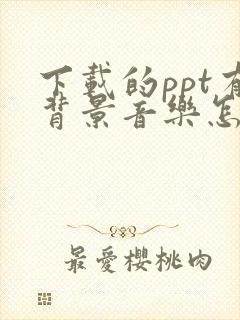 下載的ppt有
背景音樂怎
最愛櫻桃肉